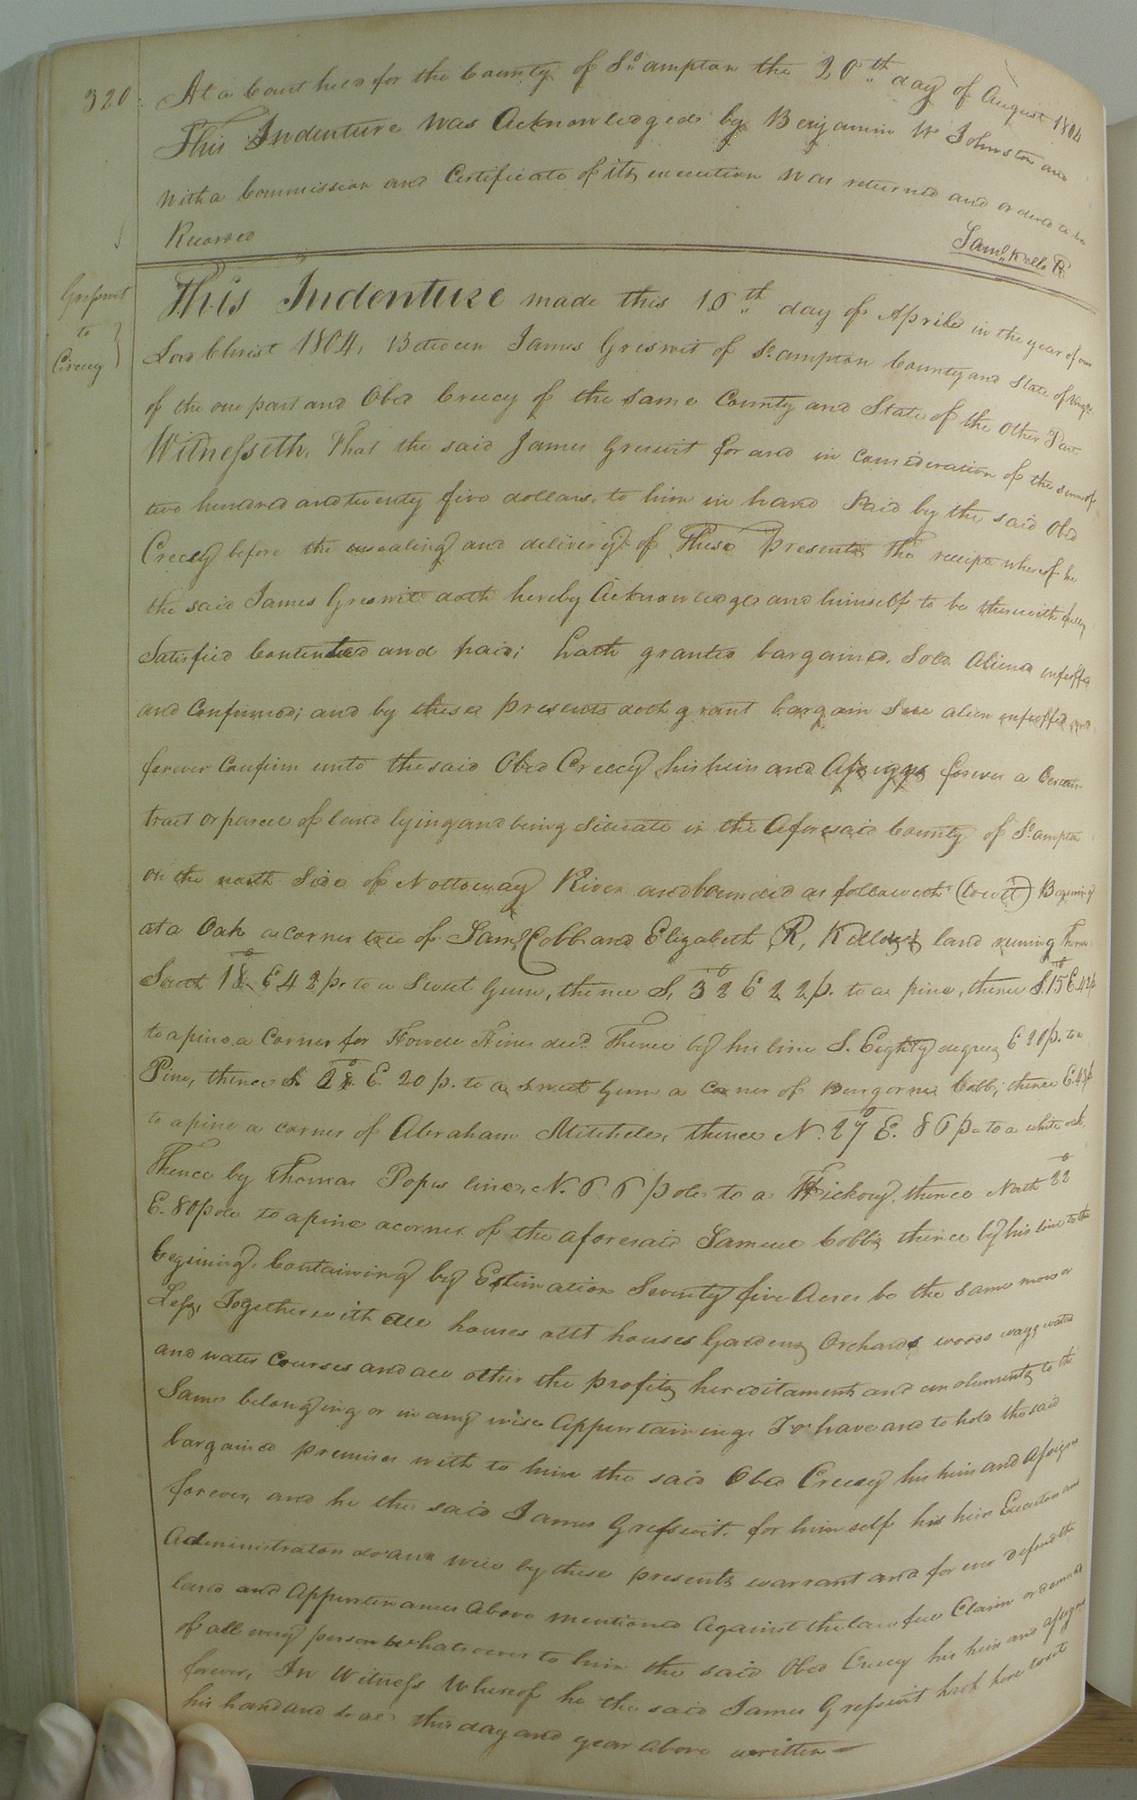 320
At a Court held for the County of So. ampton the 20th day of August 1804
This Indenture was Acknowledged by Benjamin W Johnston and
with a Commission and Certificate of its execution was returned and ordered to be
Recorded
Saml. Kello R.
Gresswit
to
Creecy
This Indenture made this 10th day of April in the year of our
Lord Christ 1804, Between James Greswit of So. ampton County and State of Virga.
of the one part and Obed Creecy of the same County and State of the other Part
Witnesseth, That the said James Greswit for and in consideration of the sum of
two hundred and twenty five dollars, to him in hand Paid by the said Obed
Creecy before the ensealing and delivery of These Presents, the receipt whereof he
the said James Greswit doth hereby Acknowledge and himself to be therewith fully
Satisfied Contented and paid; hath granted bargained. Sold Aliened enfeoffed
and Confirmed; and by these presents doth grant bargain Sell alien enfeoffed and
forever Confirm unto the said Obed Creecy his heirs and Assigns forever a Certain
tract or parcel of land lying and being Situate in the Aforesaid County of So. ampton
on the north Side of Nottoway River and bounded as followeth (towitt) Begining
at a Oak a corner tree of Saml. Cobb and Elizabeth R, Kelloes land runing Thence
South 18° E 42 p. to a Sweet Gum, thence S, 32° E 22 p. to a pine, thence S. 15° E. 42 p
to a pine a Corner for Howell Hines decd. Thence by his line S. Eighty degrees E 20 p. to a
Pine, thence S. 28° E. 20 p. to a Sweet Gum a Corner of Cobb; thence E. 42 p
to a pine a corner of Abraham Mitchele, thence N. 27° E. 86 p. to a white oak,
Thence by Thomas Popes line, N. 66 poles to a Hickory, thence North 22°
E. 80 poles to a pine a corner of the aforesaid Samuel Cobbs, thence by his line to the
begining, Containing by Estimation Seventy five Acres be the same more or
Less, Together with all houses outt houses Gardens Orchards woods ways waters
and water Courses and all other the profits hereditaments and emoluments to the
Same belonging or in any wise Appertaining To have and to hold the said
bargained premises with to him the said Obed Creecy his heirs and Assigns
forever, and he the said James Gresswit. for himself his heirs Executors and
Administrators do and will by these presents warrant and for ever defend the
land and Appurtenances Above mentioned Against the lawfull Claim or demand
of all every person whatsoever to him the said Obed Creecy his heirs and assigns
forever, In Witness Whereof he the said James Gresswit hath here to set
his hand and seal this day and year above written